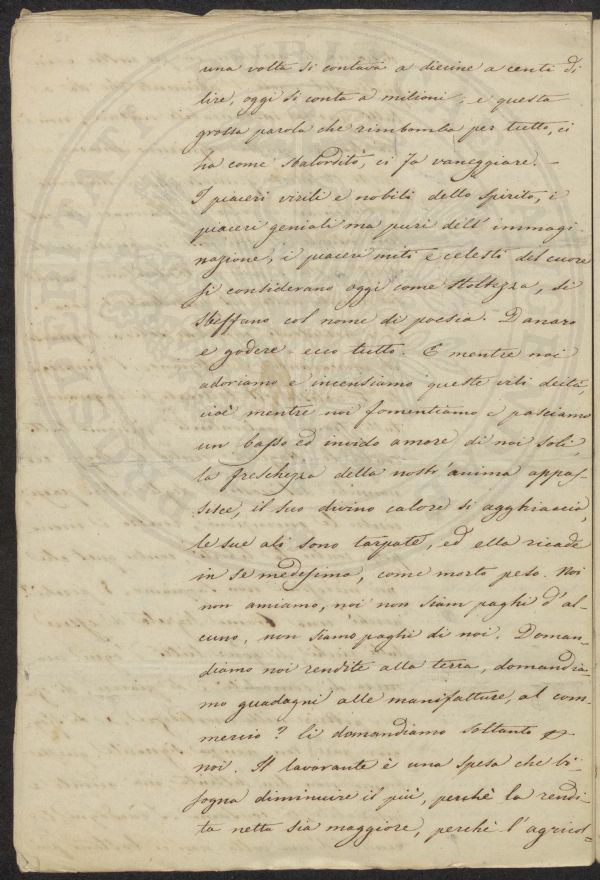 una volta si contava a diecine a centi di
lire, oggi si conta a milioni; e questa
grossa parola che rimbomba per tutto, ci
ha come sbalorditi, ci fa vaneggiare. –
I piaceri virili e nobili dello spirito, i
piaceri geniali ma puri dell' immagi-
nazione, i piaceri miti e celesti del cuore
si considerano oggi come stoltezza, si
beffano col nome di poesia. Danaro
e godere ecco tutto. E mentre noi
adoriamo e incensiamo queste vili deità,
cioè mentre noi fomentiamo e pasciamo
un basso ed invido amore di noi soli,
la freschezza della nostr'anima appas-
sisce, il suo divino calore si agghiaccia,
le sue ali sono tarpate, ed ella ricade
in se medesima, come morto peso. Noi
non amiamo, noi non siam paghi d'al-
cuno, non siamo paghi di noi. Doman-
diamo noi rendite alla terra, domandia-
mo guadagni alle manifatture, al com-
mercio? li domandiamo soltanto p
noi. Il lavorante è una spesa che bi-
sogna diminuire il più, perchè la rendi-
ta netta sia maggiore, perchè l'agricol=